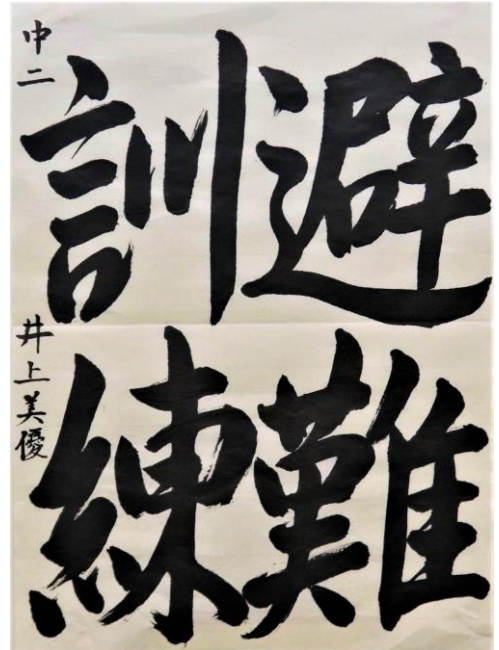 避難
訓練
中二 井上美優